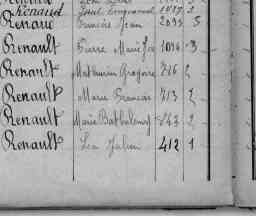 Renaud Paul Emmanuel 1077 2
Renaud Francois Jean 2095 5
Renault Pierre Marie 1094 3
Renault Mathurin Gregoire 716 2
Renault Marie Francois 713 2
Renault Marie Barthelemy 843 2
Renault Léa Julien 412 1